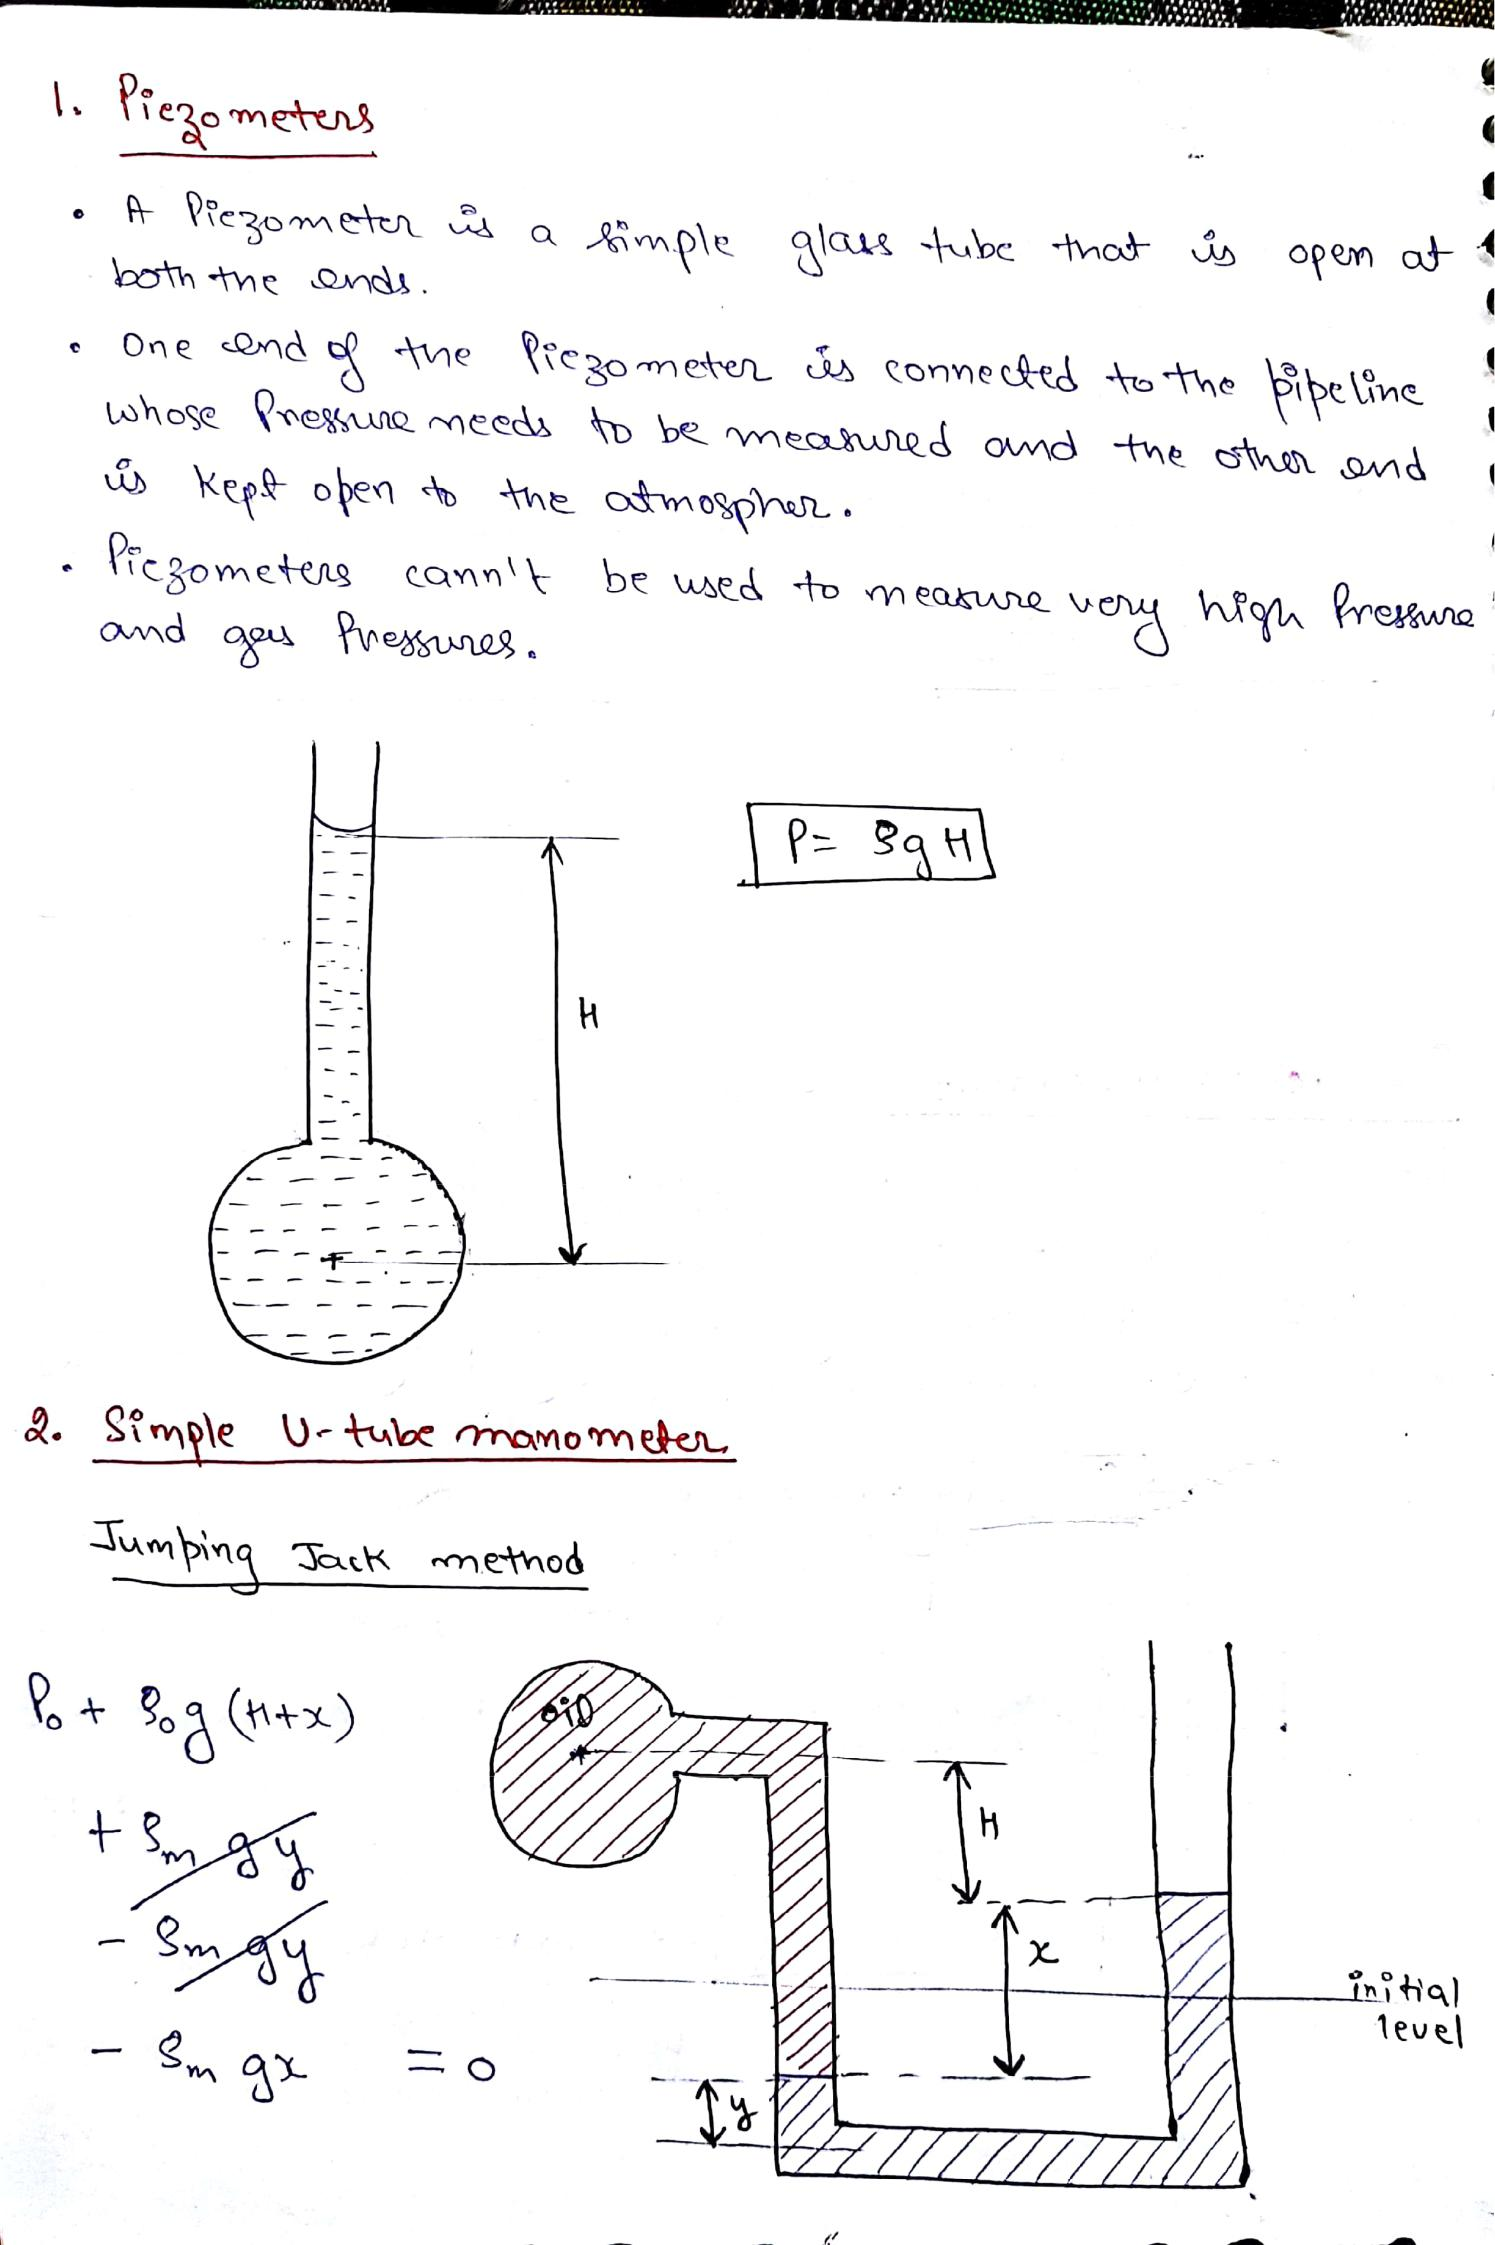 1. Piezometers
• A Piezometer is a simple glass tube that is open at
both the ends.
• One end of the Piezometer is connected to the pipeline
whose Pressure needs to be measured and the other end
is kept open to the atmospher.
• Piezometers cann't be used to measure very high Pressure
and gas Pressures.
P = ρgH
H
2. Simple U-tube manometer
Jumping Jack method
P₀ + ρ₀g (H+x)
+ ρm gy
- ρm gy
- ρm gx = 0
oil
H
x
initial
level
y